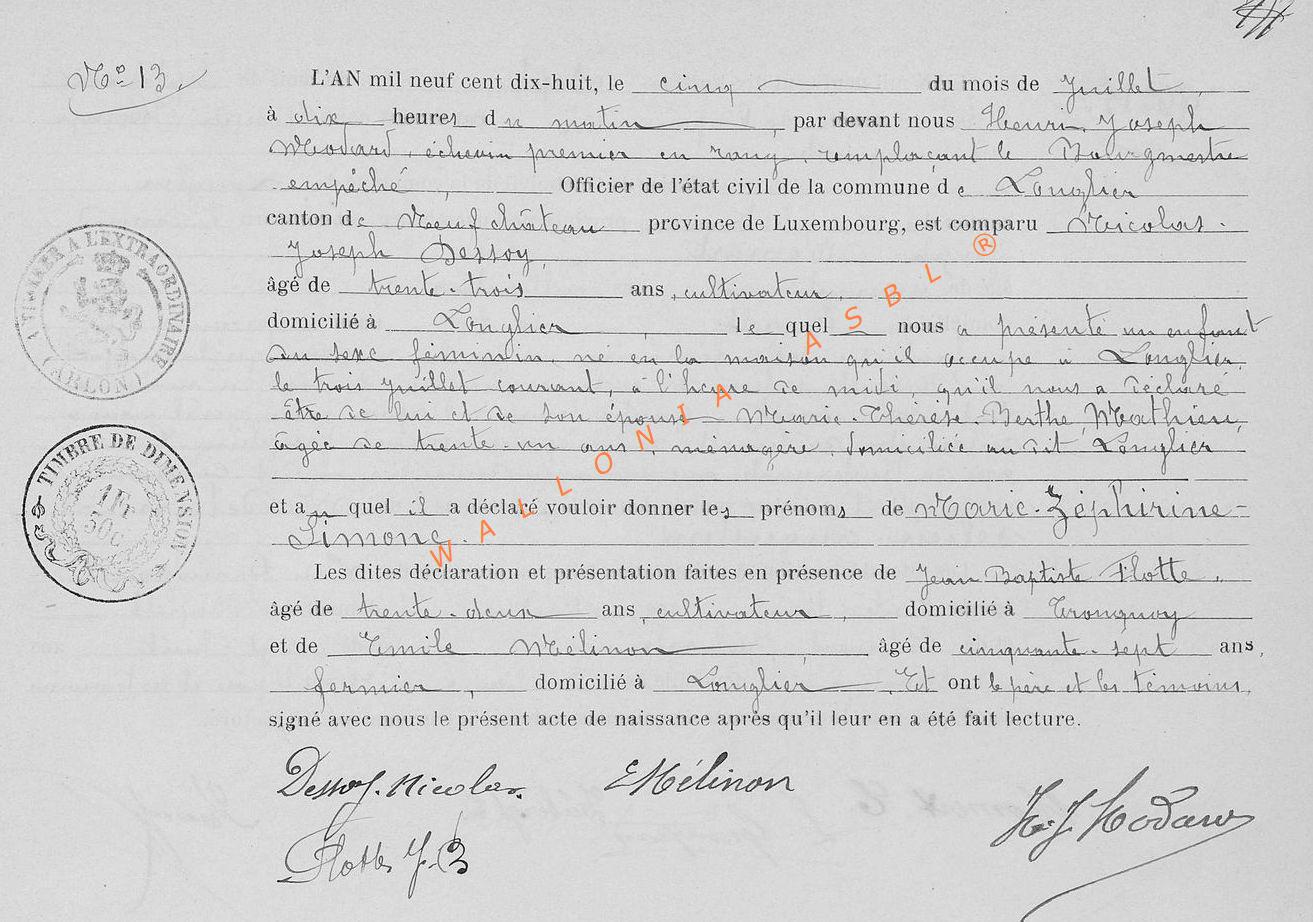 Nº 13.
L'AN mil neuf cent dix-huit, le cinq du mois de Juillet,
à dix heures du matin, par devant nous Henri, Joseph
Modard, échevin premier en rang, remplaçant le Bourgmestre
empêché, Officier de l'état civil de la commune de Longlier
canton de Neufchâteau province de Luxembourg, est comparu Nicolas-
Joseph Dessoy,
âgé de trente-trois ans, cultivateur,
domicilié à Longlier, lequel nous a présenté un enfant
du sexe féminin, né en la maison qu'il occupe à Longlier,
le trois juillet courant, à l'heure de midi, qu'il nous a déclaré
être de lui et de son épouse Marie-Thérèse-Berthe Mathieu,
âgée de trente-un ans, ménagère, domiciliée au dit Longlier
et auquel il a déclaré vouloir donner les prénoms de Marie-Zéphirine-
Simone.
Les dites déclaration et présentation faites en présence de Jean Baptiste Flotte,
âgé de trente-deux ans, cultivateur, domicilié à Tronquoy
et de Emile Mélinon, âgé de cinquante-sept ans,
fermier, domicilié à Longlier. Et ont le père et les témoins,
signé avec nous le présent acte de naissance après qu'il leur en a été fait lecture.
Dessoy. Nicolas. EMélinon
H.J. Modard
Flotte J.B
A VISER A L'EXTRAORDINAIRE
(ARLON)
TIMBRE DE DIMENSION
1 Fr
50 C
WALLONIA ASBL ®